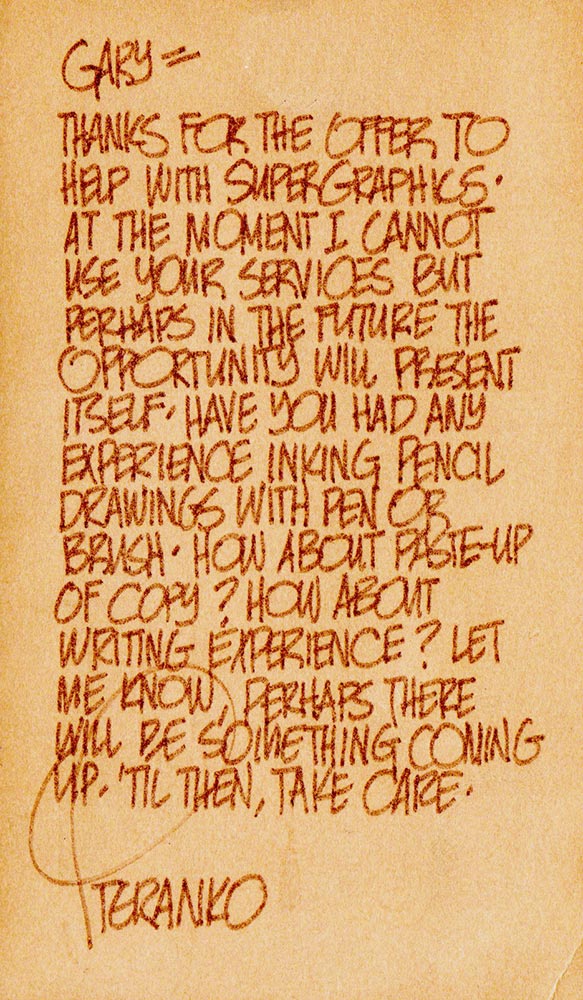 GARY =
THANKS FOR THE OFFER TO
HELP WITH SUPERGRAPHICS.
AT THE MOMENT I CANNOT
USE YOUR SERVICES BUT
PERHAPS IN THE FUTURE THE
OPPORTUNITY WILL PRESENT
ITSELF. HAVE YOU HAD ANY
EXPERIENCE INKING PENCIL
DRAWINGS WITH PEN OR
BRUSH. HOW ABOUT PASTE-UP
OF COPY? HOW ABOUT
WRITING EXPERIENCE? LET
ME KNOW, PERHAPS THERE
WILL BE SOMETHING COMING
UP. 'TIL THEN, TAKE CARE.
STERANKO